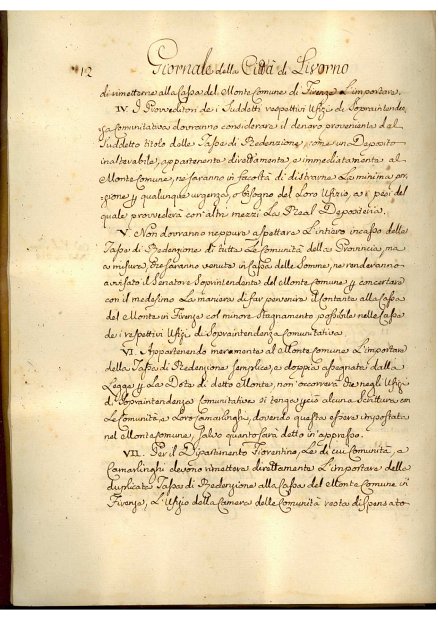 12
Giornale della Città di Livorno
di rimetterne alla Cassa del Monte Comune di Firenze L'importare.
IV. I Provveditori de i Suddetti respettivi Ufizi di Sopraintenden-
za Comunitativa dovranno considerare il denaro proveniente dal
Suddetto titolo delle Tasse di Redenzione, come un Deposito
inalterabile, appartenente direttamente, e immediatamente al
Monte Comune, nè saranno in facoltà di distrarne La minima por-
zione p qualunque urgenza, o bisogno del Loro Ufizio, a i pesi del
quale provvederà con altri mezzi La Real Depositeria.
V. Non dovranno neppure aspettare L'intiero incasso delle
Tasse di Redenzione di tutte Le Comunità della Provincia, ma
a misura, che saranno venute in Cassa delle Somme, ne renderanno
avvisato il Senatore Soprintendente del Monte Comune p concertare
con il medesimo La maniera di far pervenire il Contante alla Cassa
del Monte in Firenze col minore Stagnamento possibile nelle Casse
de i respettivi Ufizi di Sopraintendenza Comunitativa.
VI. Appartenendo meramente al Monte Comune L'importare
della Tassa di Redenzione Semplice, e doppia assegnata dalla
Legge p La Dote di detto Monte, non occorrerà che negli Ufizi
di Sopraintendenza Comunitativa si tenga più alcuna Scrittura con
Le Comunità, e Loro Camarlinghi, dovendo questa essere impostata
nel Monte Comune, salvo quanto sarà detto in appresso.
VII. Per il Dipartimento Fiorentino, Le di cui Comunità, e
Camarlinghi devono rimettere direttamente L'importare delle
duplicate Tasse di Redenzione alla Cassa del Monte Comune in
Firenze, L'Ufizio della Camera delle Comunità resta dispensato